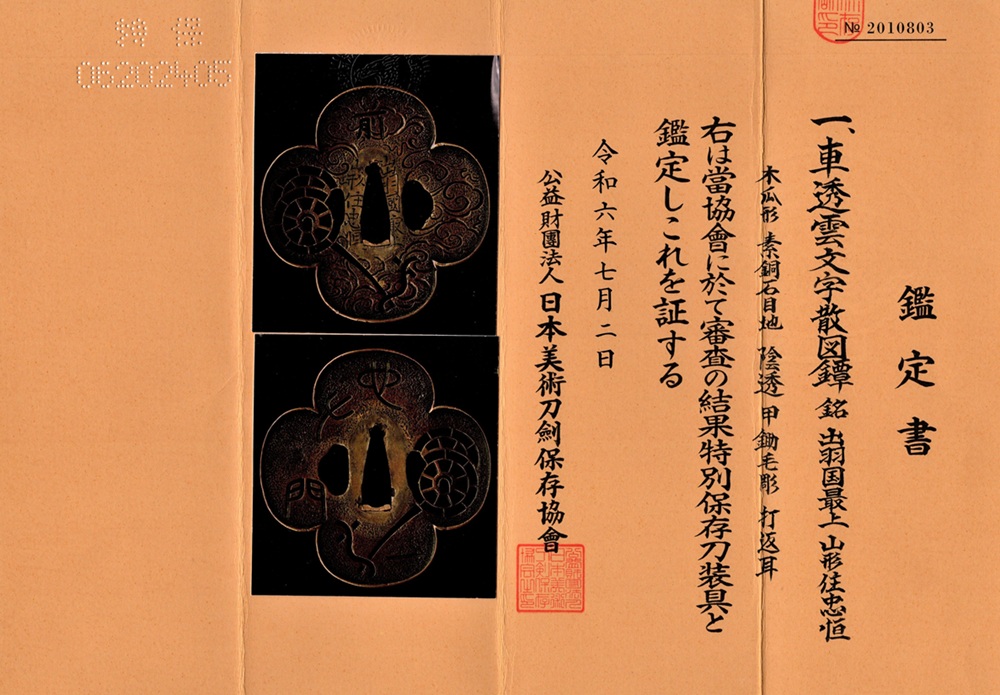 № 2010803
鑑定書
一、車透雲文字散図鐔 銘 出羽国最上 山形住忠恒
木瓜形 素銅石目地 陰透 甲鋤毛彫 打返耳
右は當協會に於て審査の結果特別保存刀装具と
鑑定しこれを証する
令和六年七月二日
公益財團法人 日本美術刀劍保存協會
特保
06202405
前
門